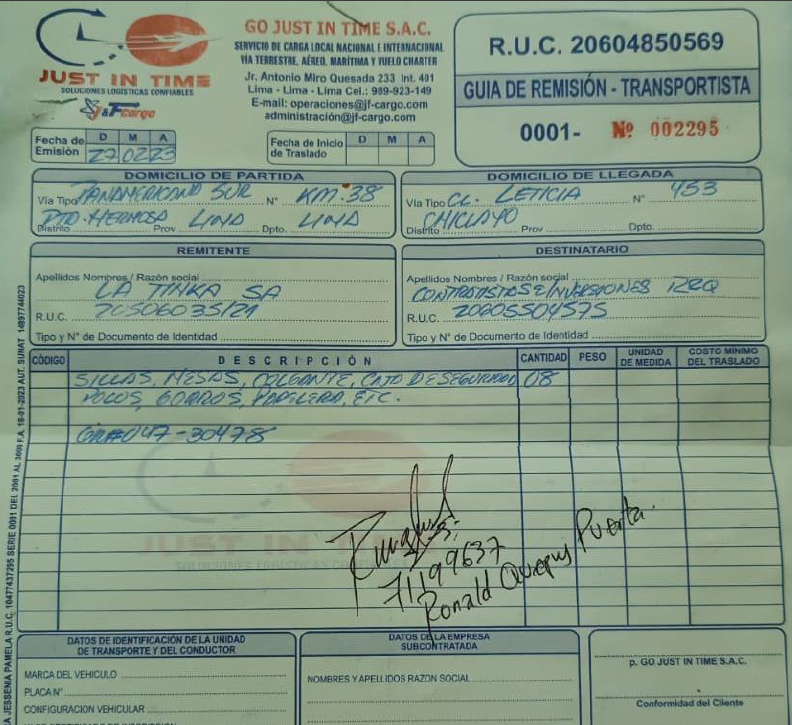 JUST IN TIME
SOLUCIONES LOGISTICAS CONFIABLES
J&F Cargo
GO JUST IN TIME S.A.C.
SERVICIO DE CARGA LOCAL NACIONAL E INTERNACIONAL
VÍA TERRESTRE, AÉREO, MARÍTIMA Y VUELO CHARTER
Jr. Antonio Miro Quesada 233 Int. 401
Lima - Lima - Lima Cel.: 989-923-149
E-mail: operaciones@jf-cargo.com
administración@jf-cargo.com
R.U.C. 20604850569
GUIA DE REMISIÓN - TRANSPORTISTA
0001- Nº 002295
Fecha de Emisión D M A
27 02 23
Fecha de Inicio de Traslado D M A
DOMICILIO DE PARTIDA
Vía Tipo PANAMERICANO SUR N° KM. 38
PTO. HERMOSA LIMA LIMA
Distrito Prov Dpto.
DOMICILIO DE LLEGADA
Vía Tipo CL. LETICIA N° 453
CHICLAYO
Distrito Prov Dpto.
REMITENTE
Apellidos Nombres / Razón social
LA TINKA SA
R.U.C. 20506035121
Tipo y N° de Documento de Identidad
DESTINATARIO
Apellidos Nombres / Razón social
CONTRATISTAS E INVERSIONES RZQ
R.U.C. 20605504575
Tipo y N° de Documento de Identidad
CÓDIGO DESCRIPCIÓN CANTIDAD PESO UNIDAD DE MEDIDA COSTO MÍNIMO DEL TRASLADO
SILLAS, MESAS, COLGANTE, CAJA DE SEGURIDAD 08
POLOS, GORROS, PAPELERA, ETC.
047-30478
JUST IN TIME
SOLUCIONES LOGISTICAS
71199637
Ronald Puerta
DATOS DE IDENTIFICACIÓN DE LA UNIDAD
DE TRANSPORTE Y DEL CONDUCTOR
MARCA DEL VEHICULO
PLACA N°
CONFIGURACION VEHICULAR
DATOS DE LA EMPRESA
SUBCONTRATADA
NOMBRES Y APELLIDOS RAZON SOCIAL
p. GO JUST IN TIME S.A.C.
Conformidad del Cliente
JESSENIA PAMELA R.U.C. 10477437295 SERIE 0001 DEL 2001 AL 3000 F.A. 18-01-2023 AUT. SUNAT 14897744023